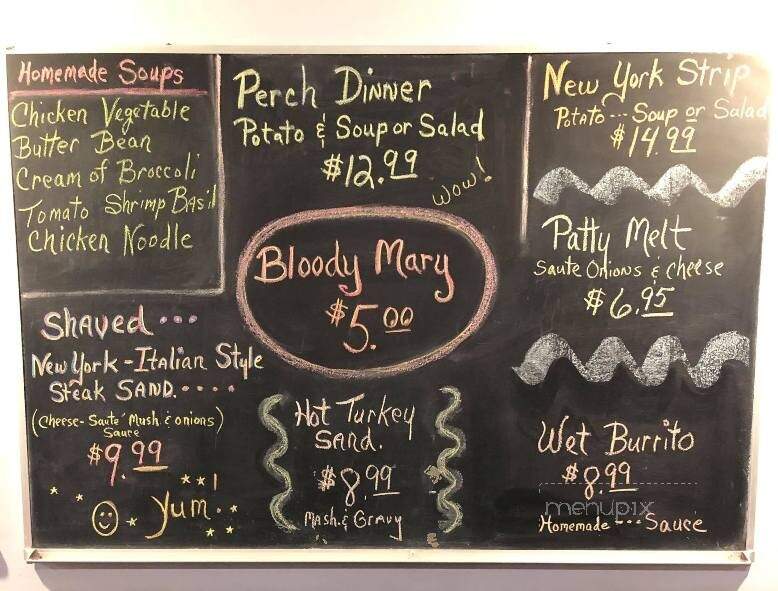 Homemade Soups
Chicken Vegetable
Butter Bean
Cream of Broccoli
Tomato Shrimp Basil
Chicken Noodle
Perch Dinner
Potato & Soup or Salad
$12.99
Wow!
New York Strip
Potato --- Soup or Salad
$14.99
Bloody Mary
$5.00
Patty Melt
Saute Onions & cheese
$6.95
Shaved ...
New York - Italian Style
Steak SAND. ....
(Cheese - Saute' Mush & onions)
Sauce
$9.99
Yum..
Hot Turkey
SAND.
$8.99
Mash. & Gravy
Wet Burrito
$8.99
menupix
Homemade --- Sauce